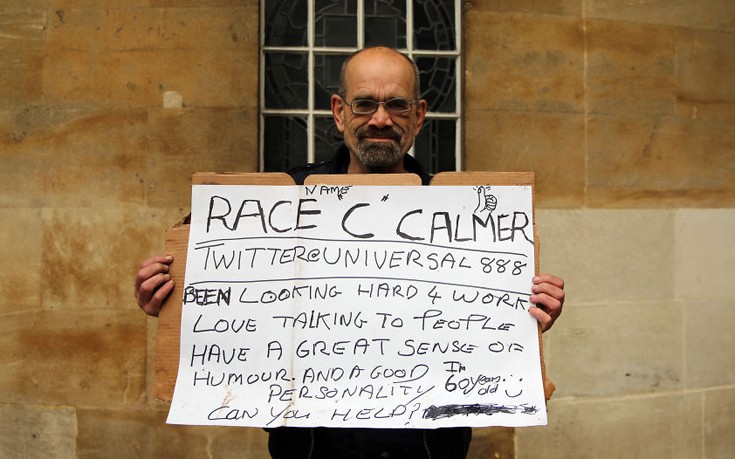 NAME
RACE "C" CALMER
TWITTER@UNIVERSAL 888
BEEN LOOKING HARD 4 WORK
LOVE TALKING TO PEOPLE
HAVE A GREAT SENSE OF
HUMOUR. AND A GOOD
PERSONALITY
I'm
60 years
old
CAN YOU HELP?